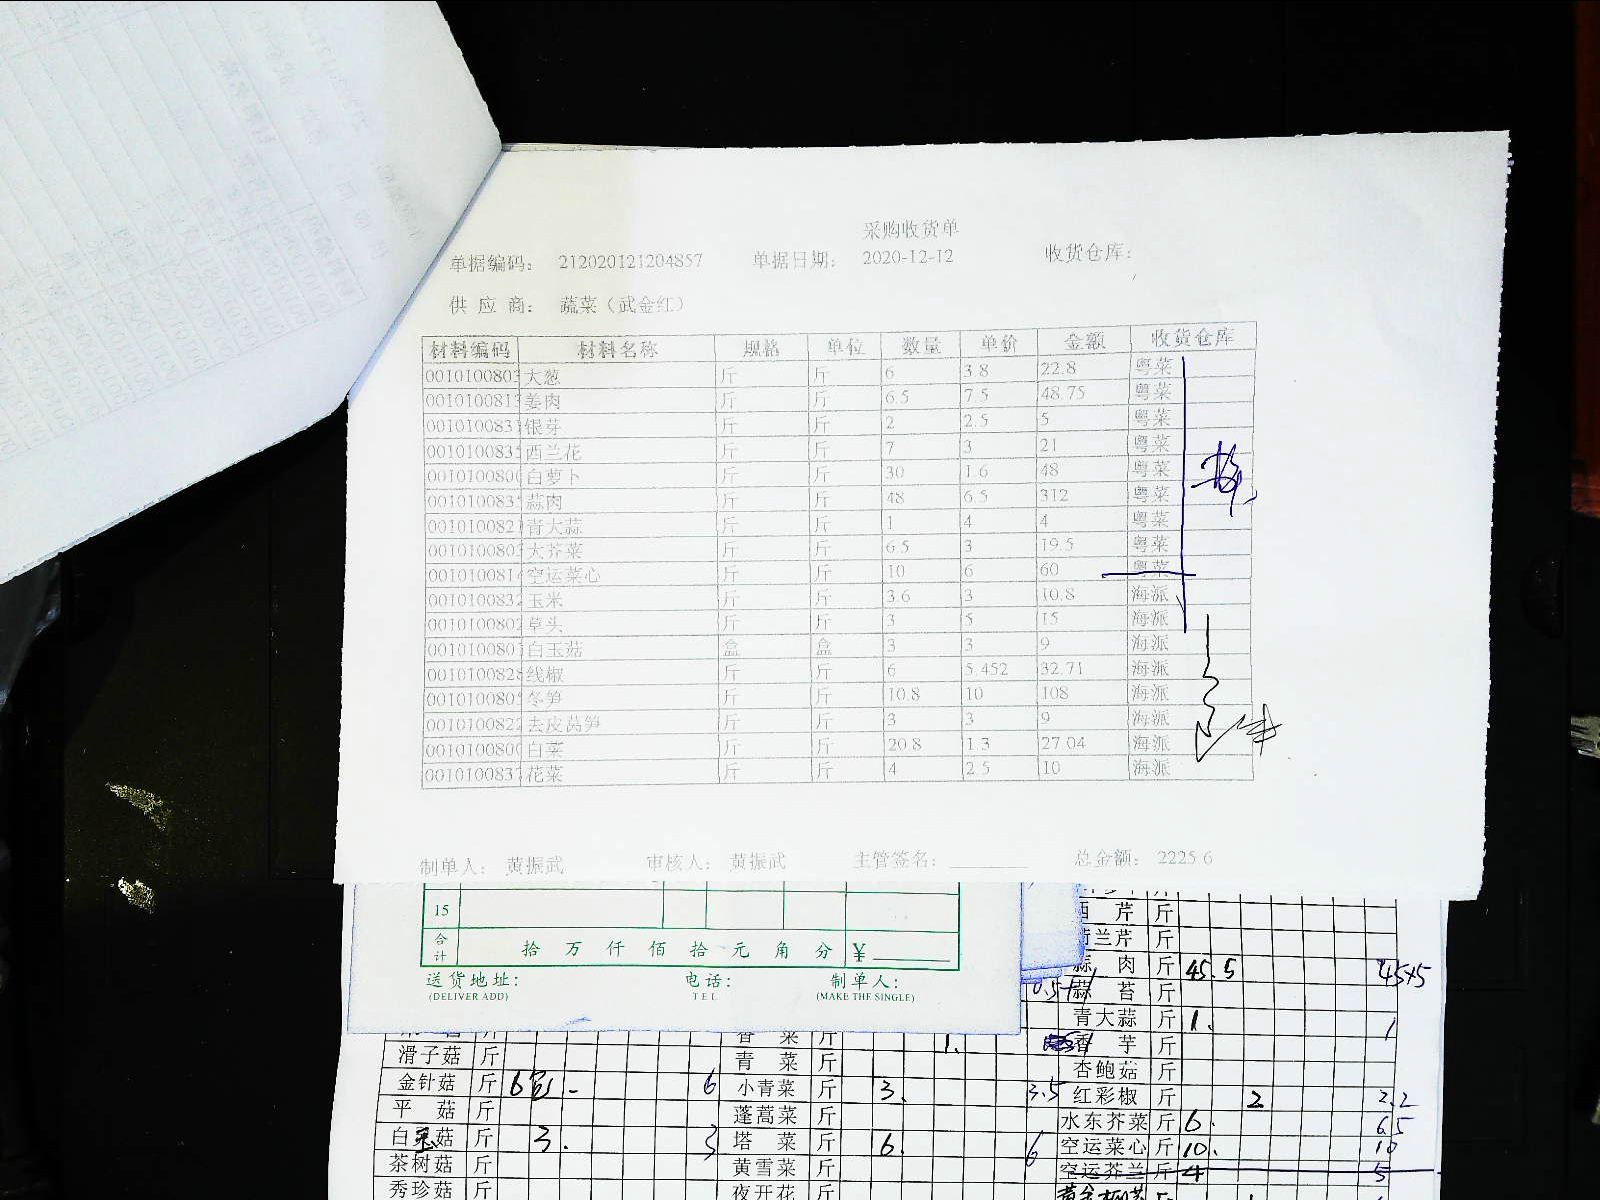 采购收货单
单据编码： 212020121204857 单据日期： 2020-12-12 收货仓库：
供 应 商： 蔬菜（武金红）
材料编码 材料名称 规格 单位 数量 单价 金额 收货仓库
0010100803 大葱 斤 斤 6 3.8 22.8 粤菜
001010081 姜肉 斤 斤 6.5 7.5 48.75 粤菜
001010083 银芽 斤 斤 2 2.5 5 粤菜
001010083 西兰花 斤 斤 7 3 21 粤菜
001010080 白萝卜 斤 斤 30 1.6 48 粤菜
001010083 蒜肉 斤 斤 48 6.5 312 粤菜
001010082 青大蒜 斤 斤 1 4 4 粤菜
001010080 大芥菜 斤 斤 6.5 3 19.5 粤菜
001010081 空运菜心 斤 斤 10 6 60 粤菜
001010083 玉米 斤 斤 3.6 3 10.8 海派
001010080 草头 斤 斤 3 5 15 海派
001010080 白玉菇 盒 盒 3 3 9 海派
001010082 线椒 斤 斤 6 5.452 32.71 海派
001010080 冬笋 斤 斤 10.8 10 108 海派
001010082 去皮莴笋 斤 斤 3 3 9 海派
001010080 白菜 斤 斤 20.8 1.3 27.04 海派
001010083 花菜 斤 斤 4 2.5 10 海派
制单人： 黄振武 审核人： 黄振武 主管签名： 总金额： 2225.6
15
合计 拾 万 仟 佰 拾 元 角 分 ¥
送货地址： 电话： 制单人：
(DELIVER ADD) TEL (MAKE THE SINGLE)
西 芹 斤
荷兰芹 斤
蒜 肉 斤 45.5 45+5
蒜 苔 斤
青大蒜 斤 1. 1
香 芋 斤
杏鲍菇 斤
红彩椒 斤 2 2.2
水东芥菜 斤 6. 6.5
空运菜心 斤 10. 10
空运芥兰 斤 4 5
香 菜 斤 1.
青 菜 斤
小青菜 斤 3. 3.5
蓬蒿菜 斤
塔 菜 斤 6. 6
黄雪菜 斤
夜开花 斤
滑子菇 斤
金针菇 斤 6 6
平 菇 斤
白玉菇 斤 3. 3
茶树菇 斤
秀珍菇 斤